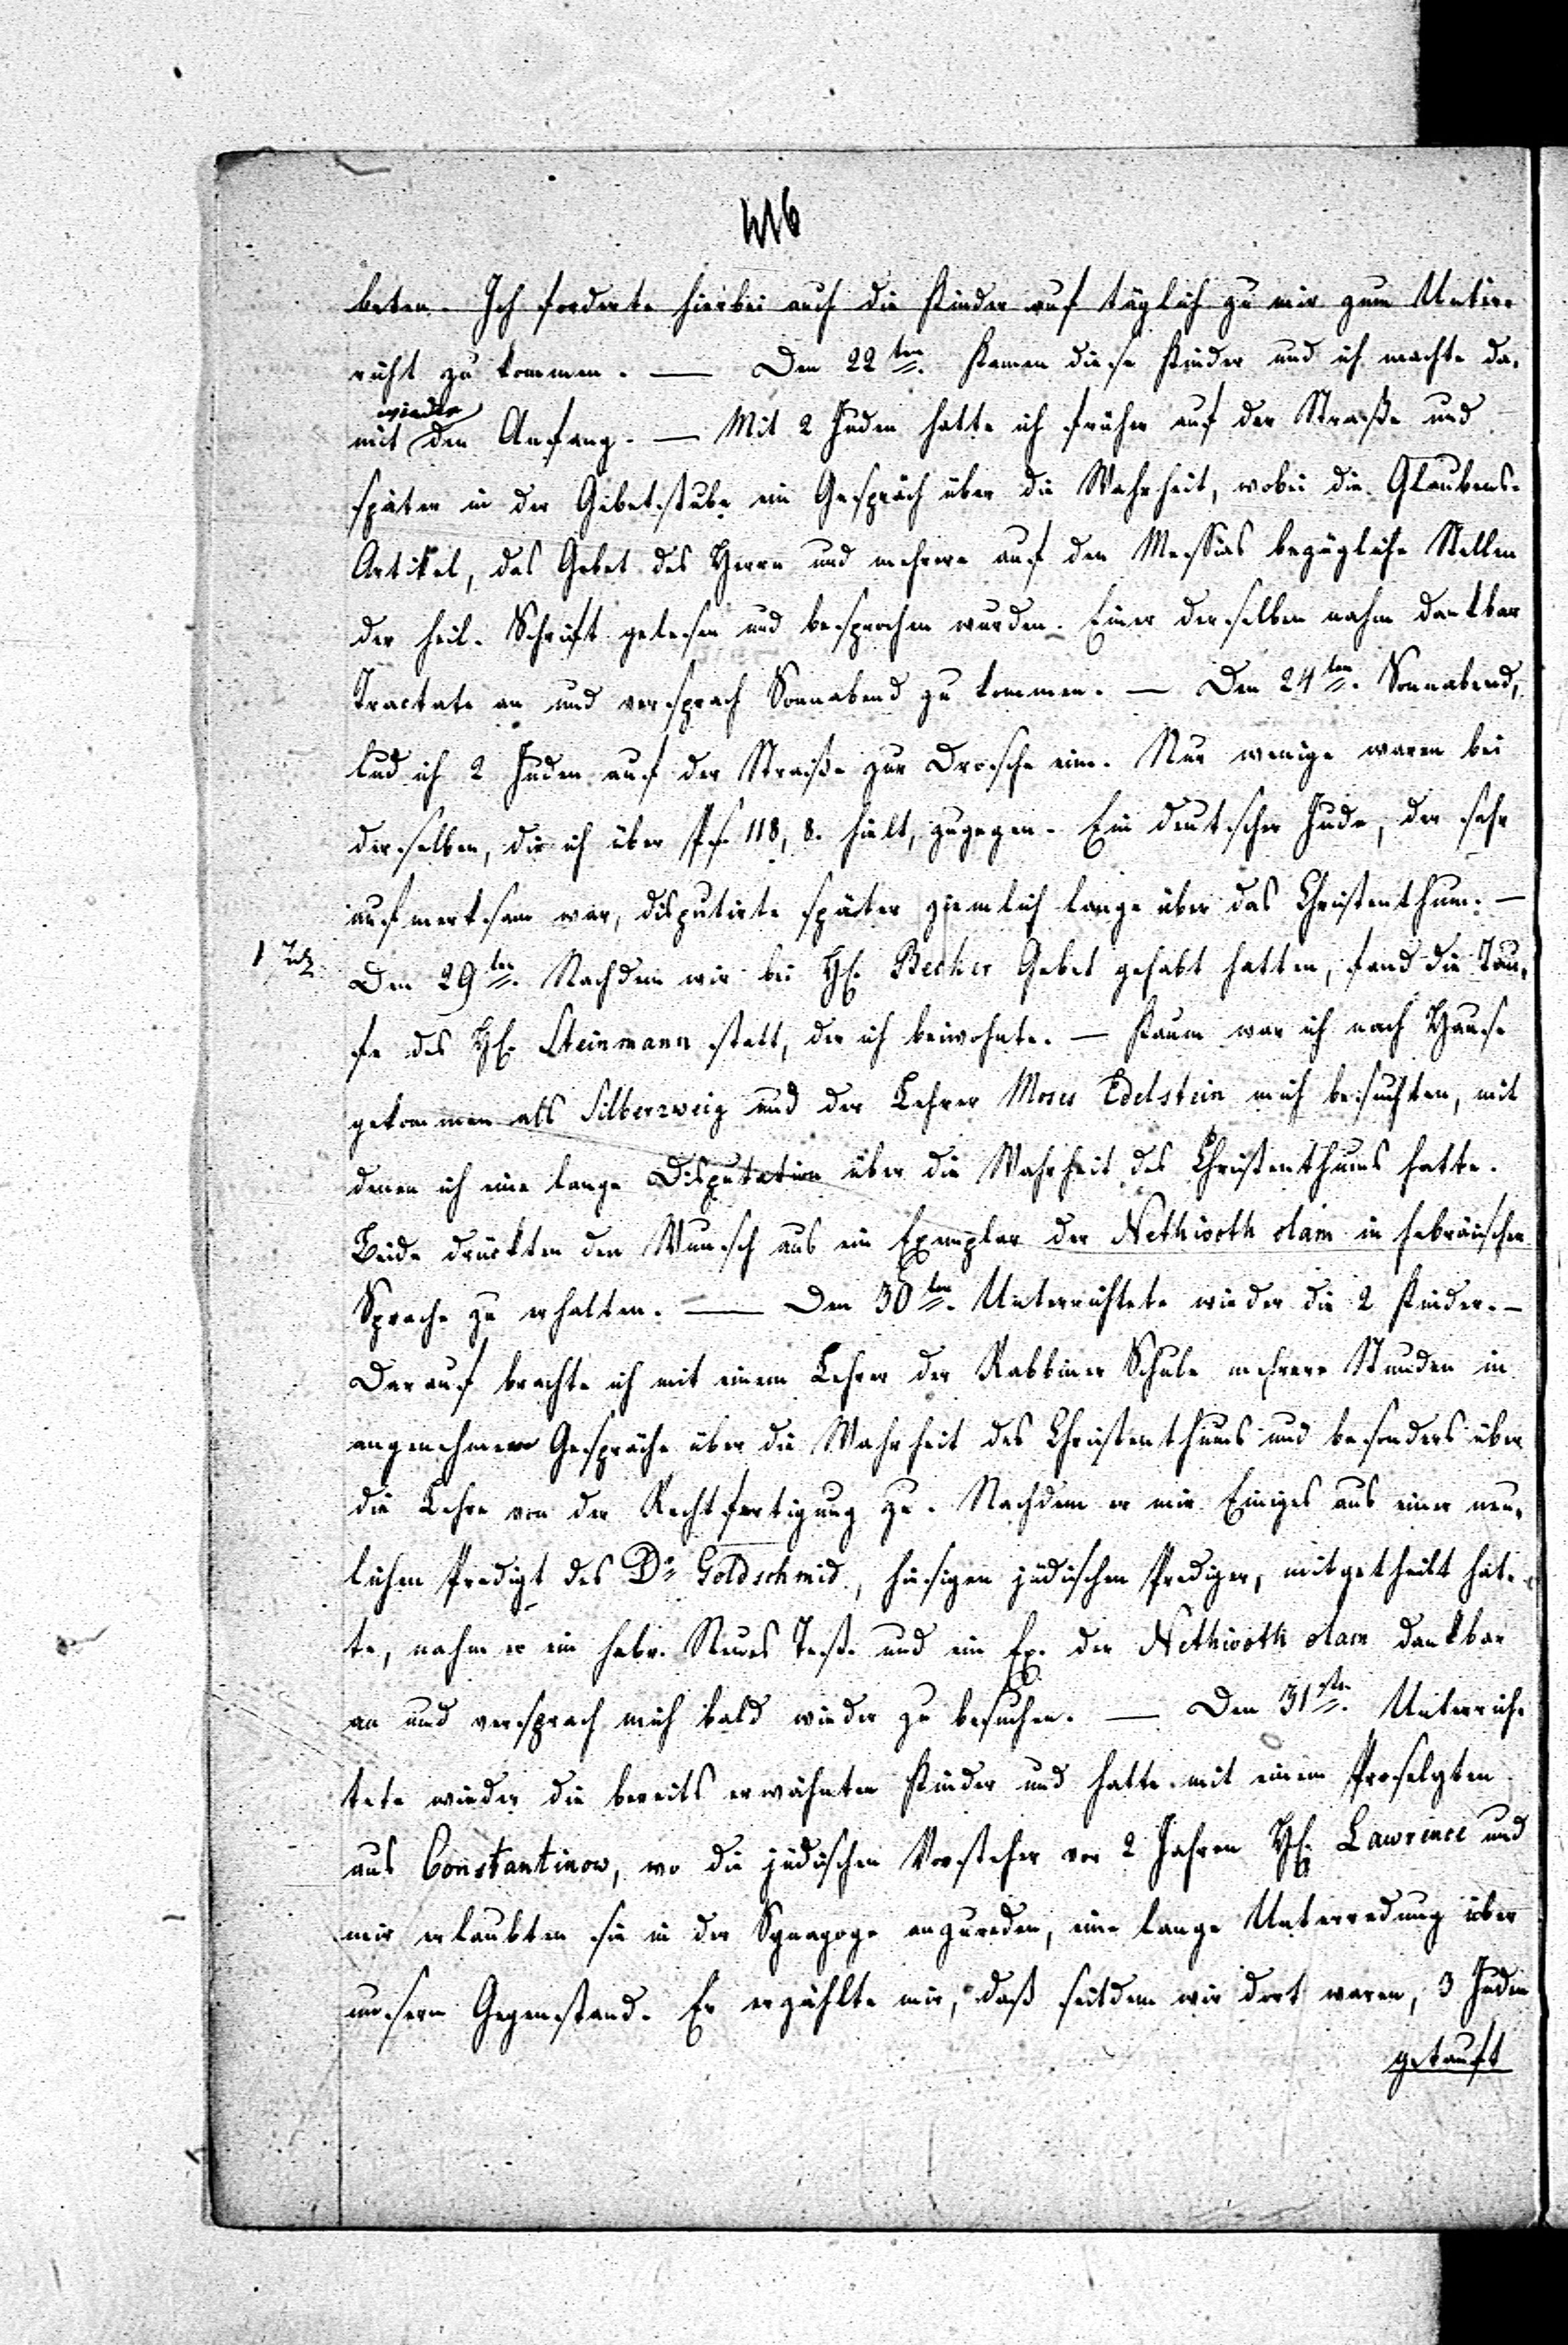 416
beten. Ich forderte hierbei auch die Kinder auf täglich zu mir zum Unter-
richt zu kommen. — Den 22ten. Kamen diese Kinder und ich machte da-
wieder
mit den Anfang. — Mit 2 Juden hatte ich früher auf der Straße und
später in der Gebetstube ein Gespräch über die Wahrheit, wobei die Glaubens-
Artikel, das Gebet des Herrn und mehrere auf den Messias bezügliche Stellen
der heil. Schrift gelesen und besprochen wurden. Einer derselben nahm dankbar
Tractate an und versprach Sonnabend zu kommen. — Den 24ten. Sonnabend,
lud ich 2 Juden auf der Straße zur Drosche ein. Nur wenige waren bei
derselben, die ich über Ps. 118, 8. hielt, zugegen. Ein deutscher Jude, der sehr
aufmerksam war, disputirte später ziemlich lange über das Christenthum. —
Den 29ten. Nachdem wir bei H. Becker Gebet gehabt hatten, fand die Tau-
fe des H. Steinmann statt, der ich beiwohnte. — Kaum war ich nach Hause
gekommen als Silberzweig und der Lehrer Moses Edelstein mich besuchten, mit
denen ich eine lange Disputation über die Wahrheit des Christenthums hatte.
Beide drückten den Wunsch aus ein Exemplar der Nethivoth olam in hebräischer
Sprache zu erhalten. — Den 30ten. Unterrichtete wieder die 2 Kinder. —
Darauf brachte ich mit einem Lehrer der Rabbiner Schule mehrere Stunden in
angenehmem Gespräche über die Wahrheit des Christenthums und besonders über
die Lehre von der Rechtfertigung zu. Nachdem er mir Einiges aus einer neu-
lichen Predigt des Dr Goldschmid, hiesigen jüdischen Prediger, mitgetheilt hat-
te, nahm er ein hebr. Neues Test. und ein Ex. der Nethivoth olam dankbar
an und versprach mich bald wieder zu besuchen. — Den 31sten. Unterrich-
tete wieder die bereits erwähnten Kinder und hatte mit einem Proselyten
aus Constantinow, wo die jüdischen Vorsteher vor 2 Jahren H. Lawrence und
mir erlaubten sie in der Synagoge anzureden, eine lange Unterredung über
unsern Gegenstand. Er erzählte mir, daß seitdem wir dort waren, 3 Juden
getauft